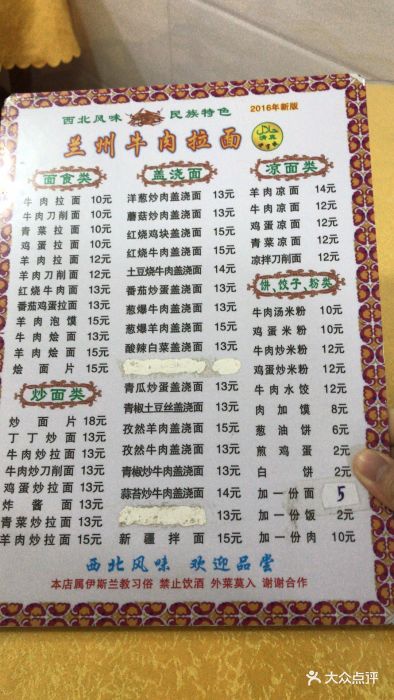 西北风味 民族特色
2016年新版
兰州牛肉拉面
清真
面食类
牛肉拉面 10元
牛肉刀削面 10元
青菜拉面 10元
鸡蛋拉面 10元
羊肉拉面 12元
羊肉刀削面 12元
红烧牛肉面 13元
番茄鸡蛋拉面 13元
羊肉泡馍 15元
牛肉烩面 13元
羊肉烩面 15元
烩面片 15元
炒面类
炒面片 18元
丁丁炒面 13元
牛肉炒拉面 13元
牛肉炒刀削面 13元
鸡蛋炒拉面 13元
炸酱面 13元
青菜炒拉面 13元
羊肉炒拉面 15元
盖浇面
洋葱炒肉盖浇面 13元
蘑菇炒肉盖浇面 13元
红烧鸡块盖浇面 15元
红烧牛肉盖浇面 15元
土豆烧牛肉盖浇面 14元
番茄炒蛋盖浇面 13元
葱爆牛肉盖浇面 13元
葱爆羊肉盖浇面 15元
酸辣白菜盖浇面 13元
青瓜炒蛋盖浇面 13元
青椒土豆丝盖浇面 13元
孜然羊肉盖浇面 15元
孜然牛肉盖浇面 13元
青椒炒牛肉盖浇面 13元
蒜苔炒牛肉盖浇面 14元
新疆拌面 15元
凉面类
羊肉凉面 14元
牛肉凉面 12元
鸡蛋凉面 12元
青菜凉面 12元
凉拌刀削面 12元
饼、饺子、粉类
牛肉汤米粉 10元
鸡蛋米粉 10元
牛肉炒米粉 12元
鸡蛋炒米粉 12元
牛肉水饺 12元
肉加馍 8元
葱油饼 6元
煎鸡蛋 2元
白饼 2元
加一份面 5
加一份饭 2元
加一份肉 10元
西北风味 欢迎品尝
本店属伊斯兰教习俗 禁止饮酒 外菜莫入 谢谢合作
大众点评